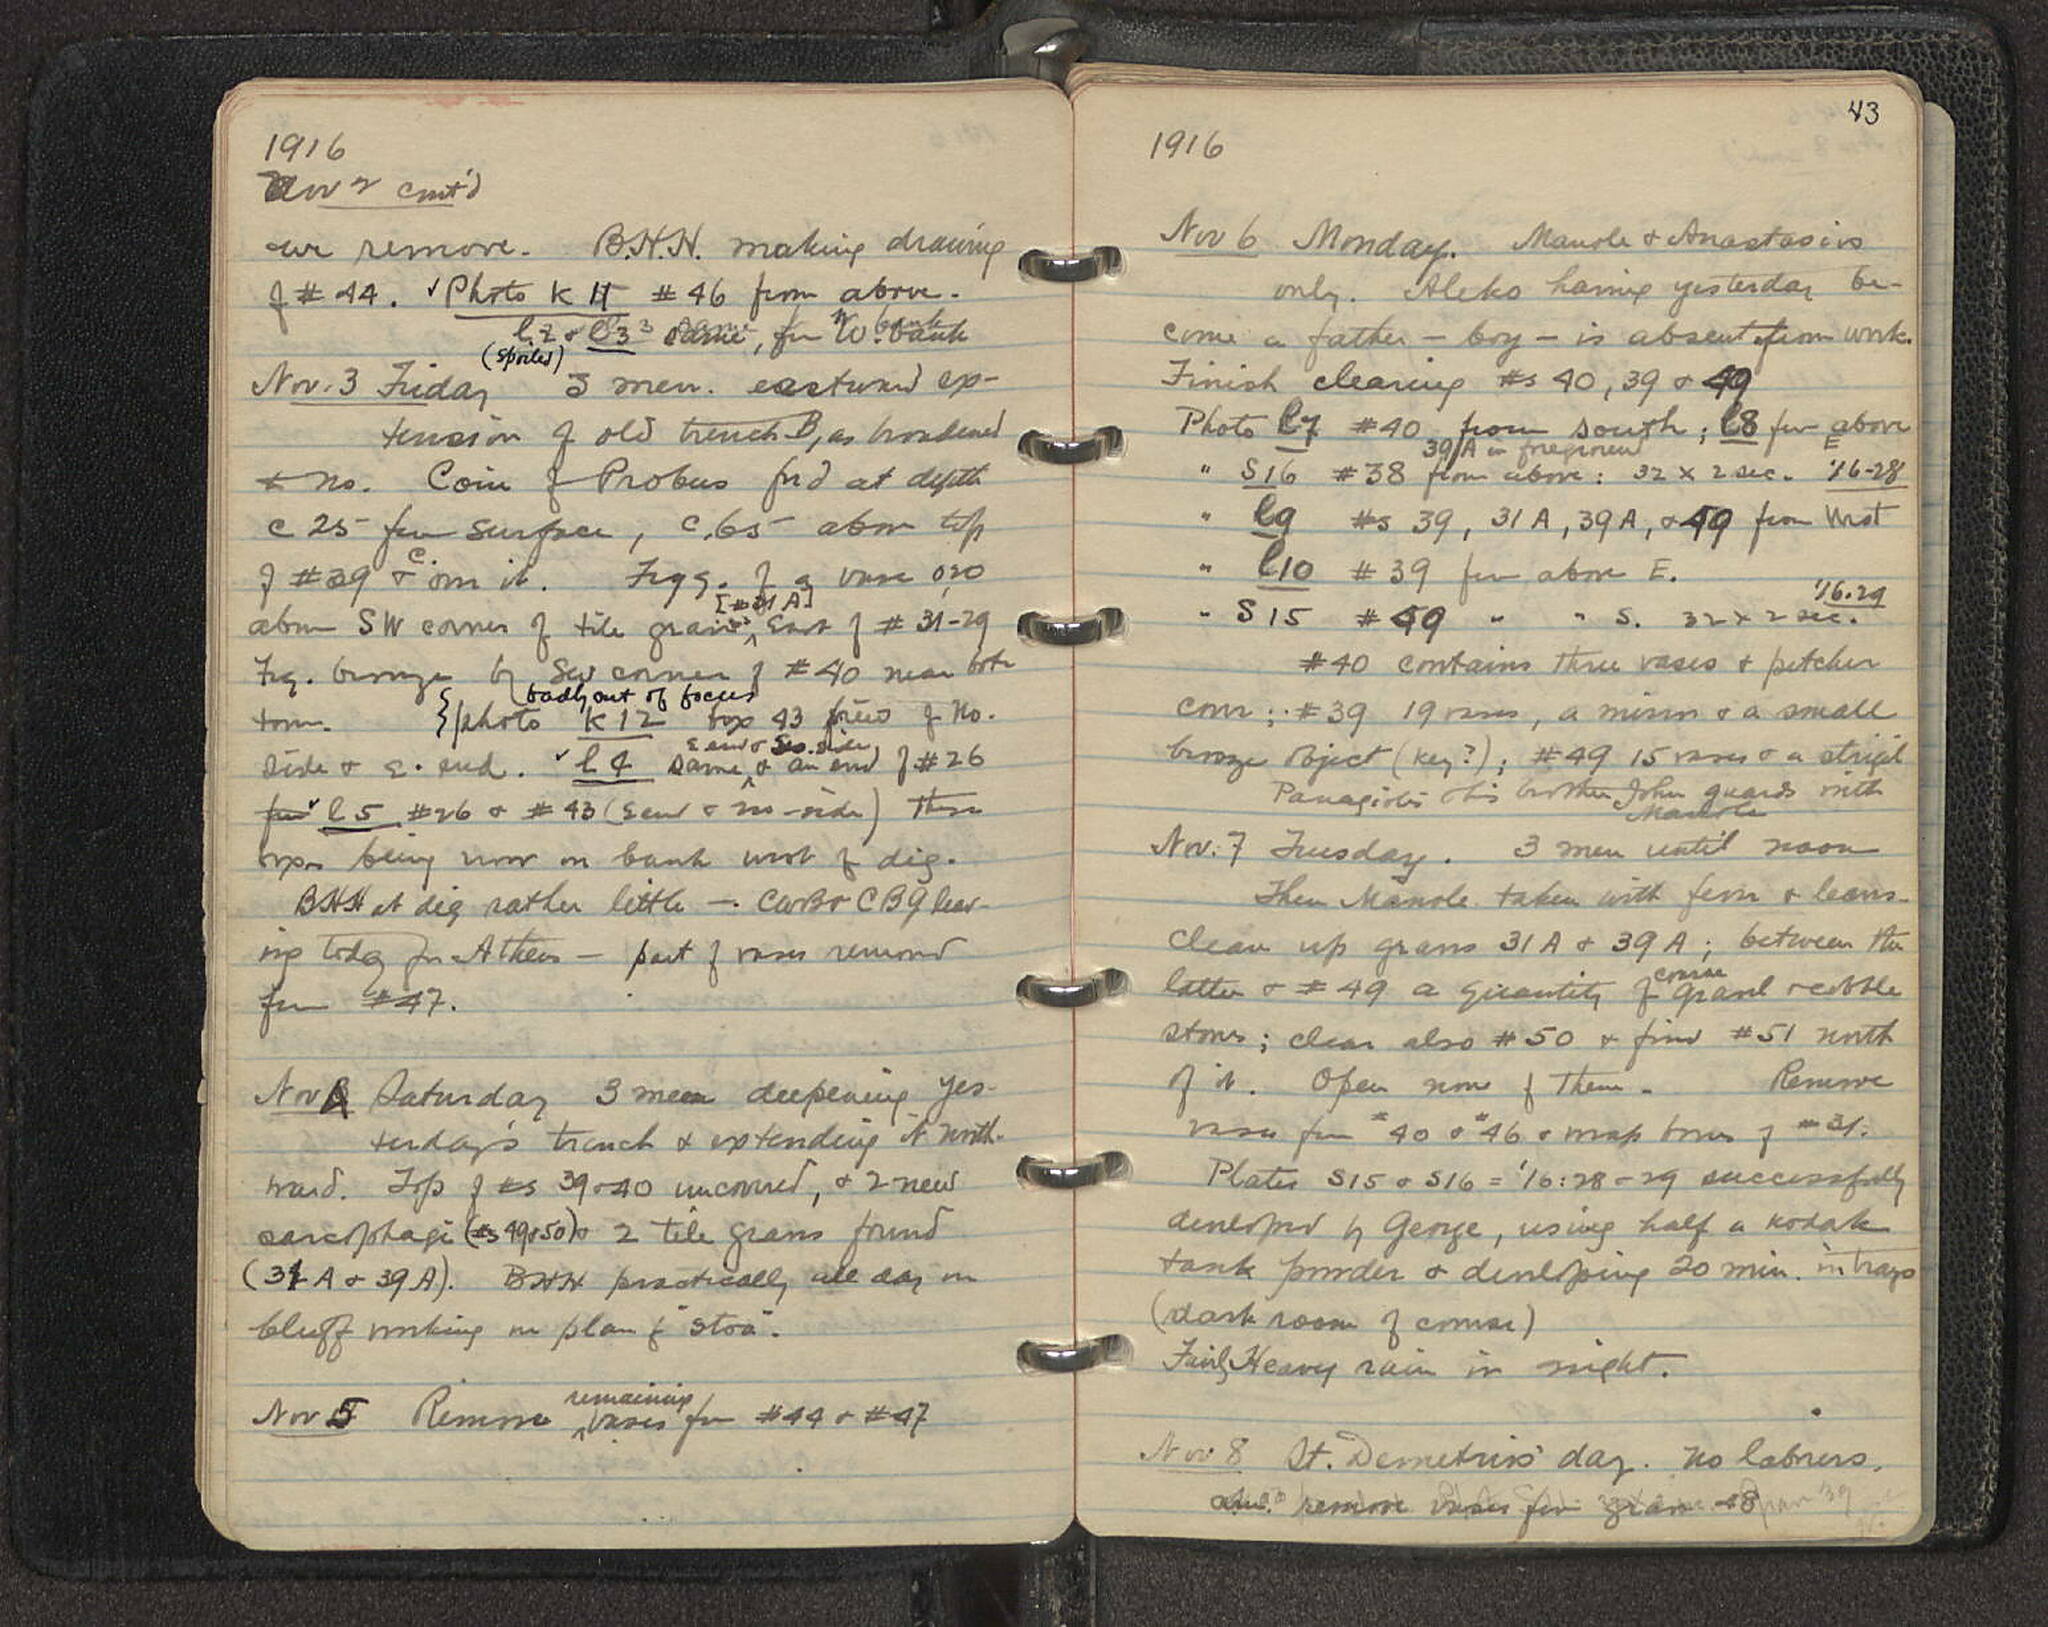 1916
Nov 2 cont'd
we remove. B.H.H. making drawing
of #44. ✓Photo K 11 #46 from above.
l2 & l3 same, fm W. bank
(spoiled)
Nov. 3 Friday 3 men. eastward ex-
tension of old trench B, as broadened
to no. Coin of Probus fnd at depth
c 25 fm surface, c.65 above top
of #39 & c. on it. Frgg. of a vase
above SW corner of tile grave [#31 A] East of #31-29
Frg. bronze by SW corner of #40 near bot-
tom. {photo K 12 badly out of focus top 43 from no.
side & E. end. ✓l 4 same E end & So. side & an end of #26
✓l 5 #26 & #43 (E end & no-side) These
tops being now on bank west of dig.
BHH at dig rather little — CWB & CBG leav-
ing today for Athens — part of vases removed
fm #47.
Nov 4 Saturday 3 men deepening yes-
terday's trench & extending it north-
ward. Top of #s 39 & 40 uncovered, & 2 new
sarcophagi (#s 49 & 50) & 2 tile graves found
(31 A & 39 A). BHH practically all day on
bluff working on plan of "stoa".
Nov 5 Remove remaining vases fm #44 & #47
43
1916
Nov 6 Monday. Manole & Anastasios
only. Aleko having yesterday be-
come a father — boy — is absent from work.
Finish clearing #s 40, 39 & 49
Photo l7 #40 from south; l8 fm above E
" S16 #38 from above: 39A in foreground 32 x 2 sec. '16-28
" l9 #s 39, 31 A, 39A, & 49 from West
" l10 #39 fm above E.
" S15 #49 " " S. 32 x 2 sec. '16.29
#40 contains three vases & pitcher
cover; #39 19 vases, a mirror & a small
bronze object (key?); #49 15 vases & a strigil
Panagiotis & his brother John guards with
Manole
Nov. 7 Tuesday. 3 men until noon
Then Manole taken with fever & leaves.
Clean up graves 31 A & 39 A; between the
latter & #49 a quantity of coarse gravel & cobble
stones; clear also #50 & find #51 north
of it. Open none of them. Remove
vases fm #40 & #46 & wrap bones of #31.
Plates S15 & S16 = '16:28-29 successfully
developed by George, using half a kodak
tank powder & developing 20 min. in trays
(dark room of course)
Fairly Heavy rain in night.
Nov 8 St. Demetrios' day. No laborers.
remove vases fm grave 48